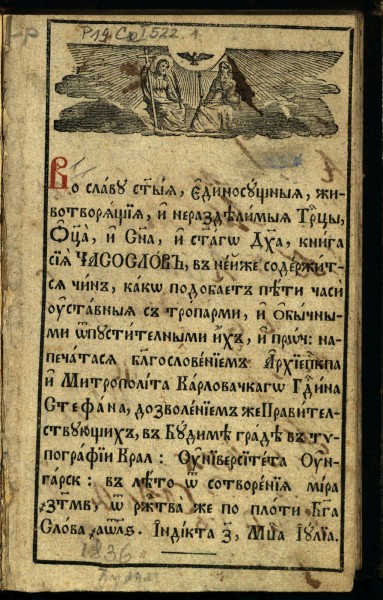 Р19Ср I 522. 1
Во славу ст҃ыѧ, є҆диносꙋ́щныѧ, жи-
вотворѧ́щїѧ, и҆ нераздѣли́мыѧ Трⷪ҇цы,
Ѻ҆ц҃а̀, и҆ Сн҃а, и҆ ст҃а́гѡ Дх҃а, кни́га
сїѧ̀ ЧАСОСЛО́ВЪ, въ не́йже содержи́т-
сѧ чи́нъ, ка́кѡ подоба́етъ пѣ́ти часы̀
ᲂу҆ста́вныѧ съ тропармѝ, и҆ ѻ҆бы́чны-
ми ѿпꙋсти́телными и҆́хъ, и҆ прѡ́ч: на-
печа́тасѧ блг҃ослове́нїемъ А҆рхїепⷭ҇кпа
и҆ Митрополі́та Ка́рловачкагѡ Гдⷭ҇и́на
Стефа́на, дозволе́нїемъ же Прави́тел-
ствꙋющихъ, въ Бꙋ́димѣ гра́дѣ въ тѵ-
погра́фїи Крал : Оу҆нїверсїте́та Оу҆н-
га́рск : въ лѣ́то ѿ сотворе́нїѧ мі́ра
҂зтмв ѿ ржⷭ҇тва̀ же по пло́ти Бг҃а
Сло́ва ҂аѡлѕ. І҆нді́кта з҃, Мцⷭ҇а І҆ꙋ́лїа.
1836